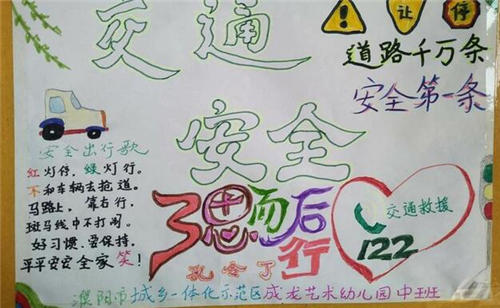 交通
安全
让 停
道路千万条
安全第一条
安全出行歌
红灯停，绿灯行。
不和车辆去抢道。
马路上，靠右行，
斑马线中不打闹。
好习惯，要保持，
平平安安全家笑！
3思而后
行
交通救援
122
濮阳市城乡一体化示范区成龙艺术幼儿园中班